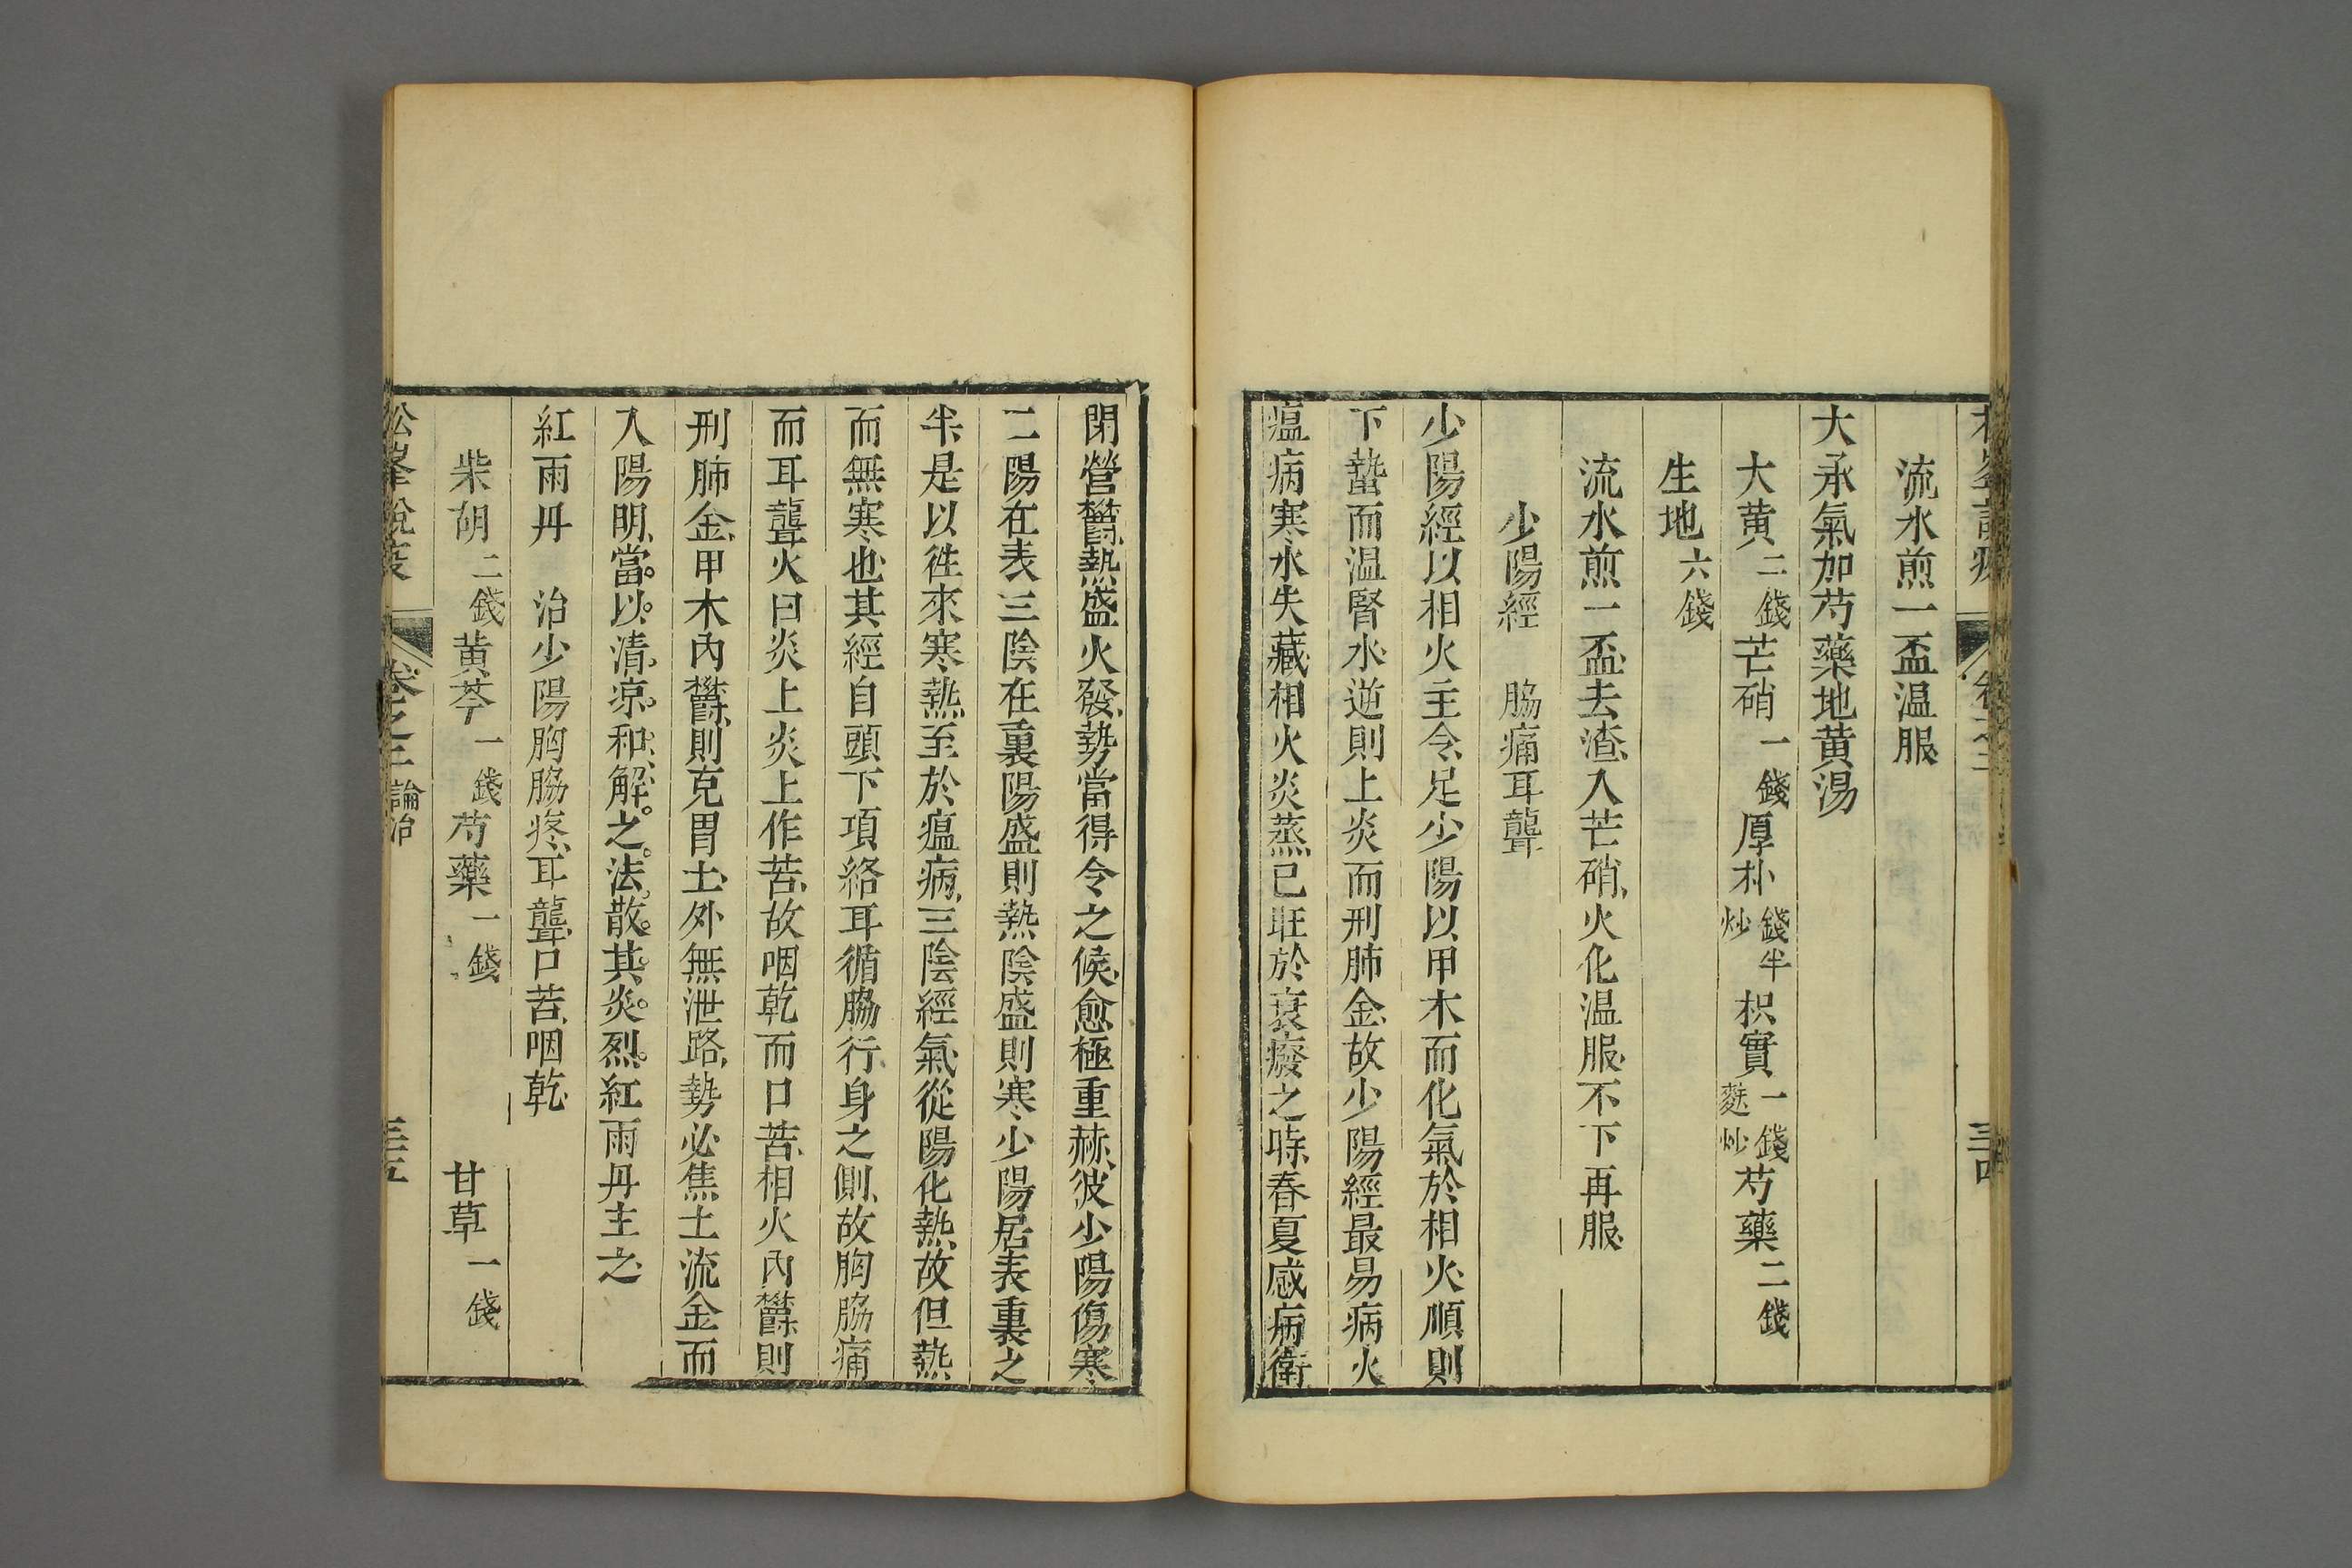 流水煎一盃温服
大承氣加芍藥地黄湯
大黄二錢芒硝一錢厚朴錢半炒枳實一錢麩炒芍藥二錢
生地六錢
流水煎一盃去渣入芒硝火化温服不下再服
少陽經　脇痛耳聾
少陽經以相火主令足少陽以甲木而化氣於相火順則
下蟄而温腎水逆則上炎而刑肺金故少陽經最易病火
瘟病寒水失藏相火炎蒸已旺於衰廢之時春夏感病衛
閉營欝熱盛火發勢當得令之候愈極重赫彼少陽傷寒
二陽在表三陰在裏陽盛則熱陰盛則寒少陽居表裏之
半是以徃來寒熱至於瘟病三陰經氣從陽化熱故但熱
而無寒也其經自頭下項絡耳循脇行身之側故胸脇痛
而耳聾火曰炎上炎上作苦故咽乾而口苦相火内欝則
刑肺金甲木内欝則克胃土外無泄路勢必焦土流金而
入陽明當以清凉和解之法散其炎烈紅雨丹主之
紅雨丹　治少陽胸脇疼耳聾口苦咽乾
柴胡二錢黄芩一錢芍藥一錢　甘草一錢
松峯說疫　卷之三　論治　三五